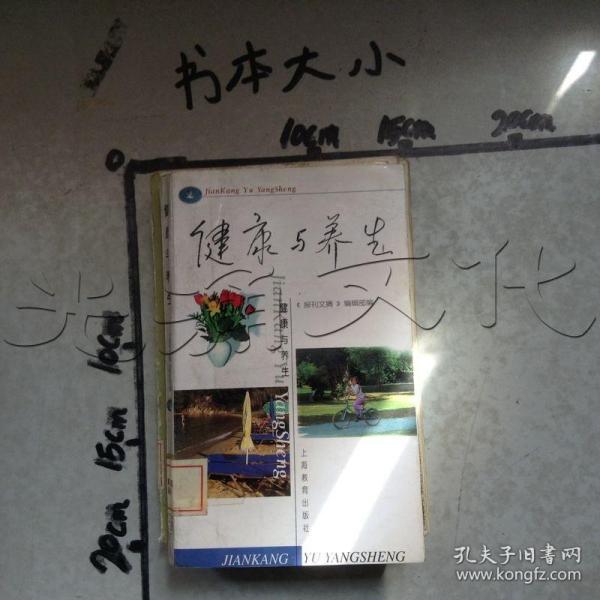 书本大小
10cm
15cm
20cm
0
10cm
15cm
20cm
JianKang Yu YangSheng
健康与养生
《报刊文摘》编辑部编
健康与养生
JianKang Yu YangSheng
上海教育出版社
JIANKANG YU YANGSHENG
文化
孔夫子旧书网
www.kongfz.com